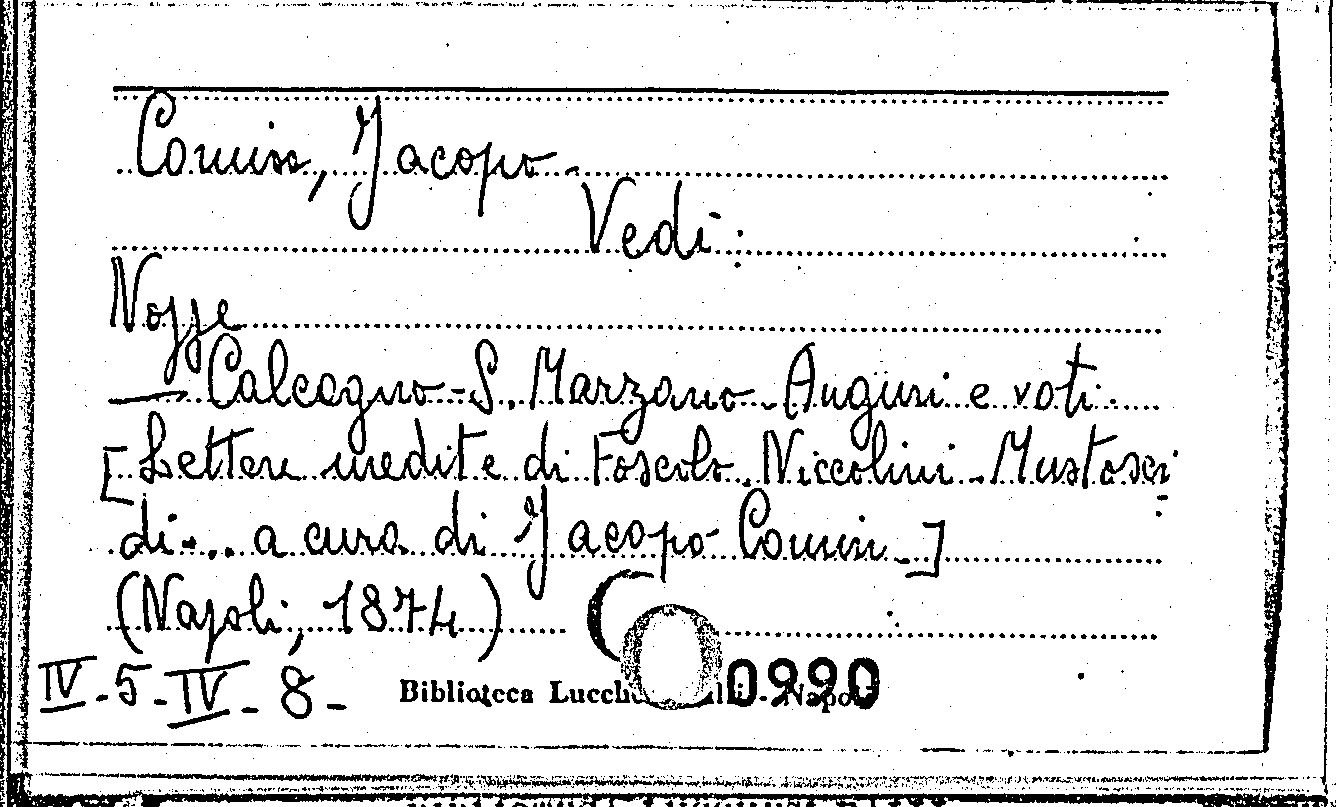 Comin, Jacopo.
Vedi:
Nozze
— Calcagno - S. Marzano. Auguri e voti.
[Lettere inedite di Foscolo. Niccolini. Mustoxi
di... a cura di Jacopo Comin.]
(Napoli, 1874)
IV - 5 - IV - 8 -
Biblioteca
0990